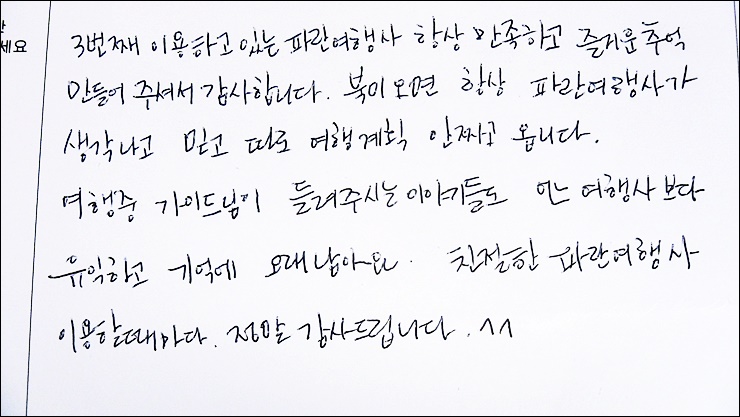 세요
3번째 이용하고 있는 파란여행사 항상 만족하고 즐거운 추억
만들어 주셔서 감사합니다. 북미오면 항상 파란여행사가
생각나고 믿고 따로 여행계획 안짜고 옵니다.
여행중 가이드님이 들려주시는 이야기들도 어느 여행사 보다
유익하고 기억에 오래 남아요. 친절한 파란여행사
이용할때마다. 정말 감사드립니다. ^^